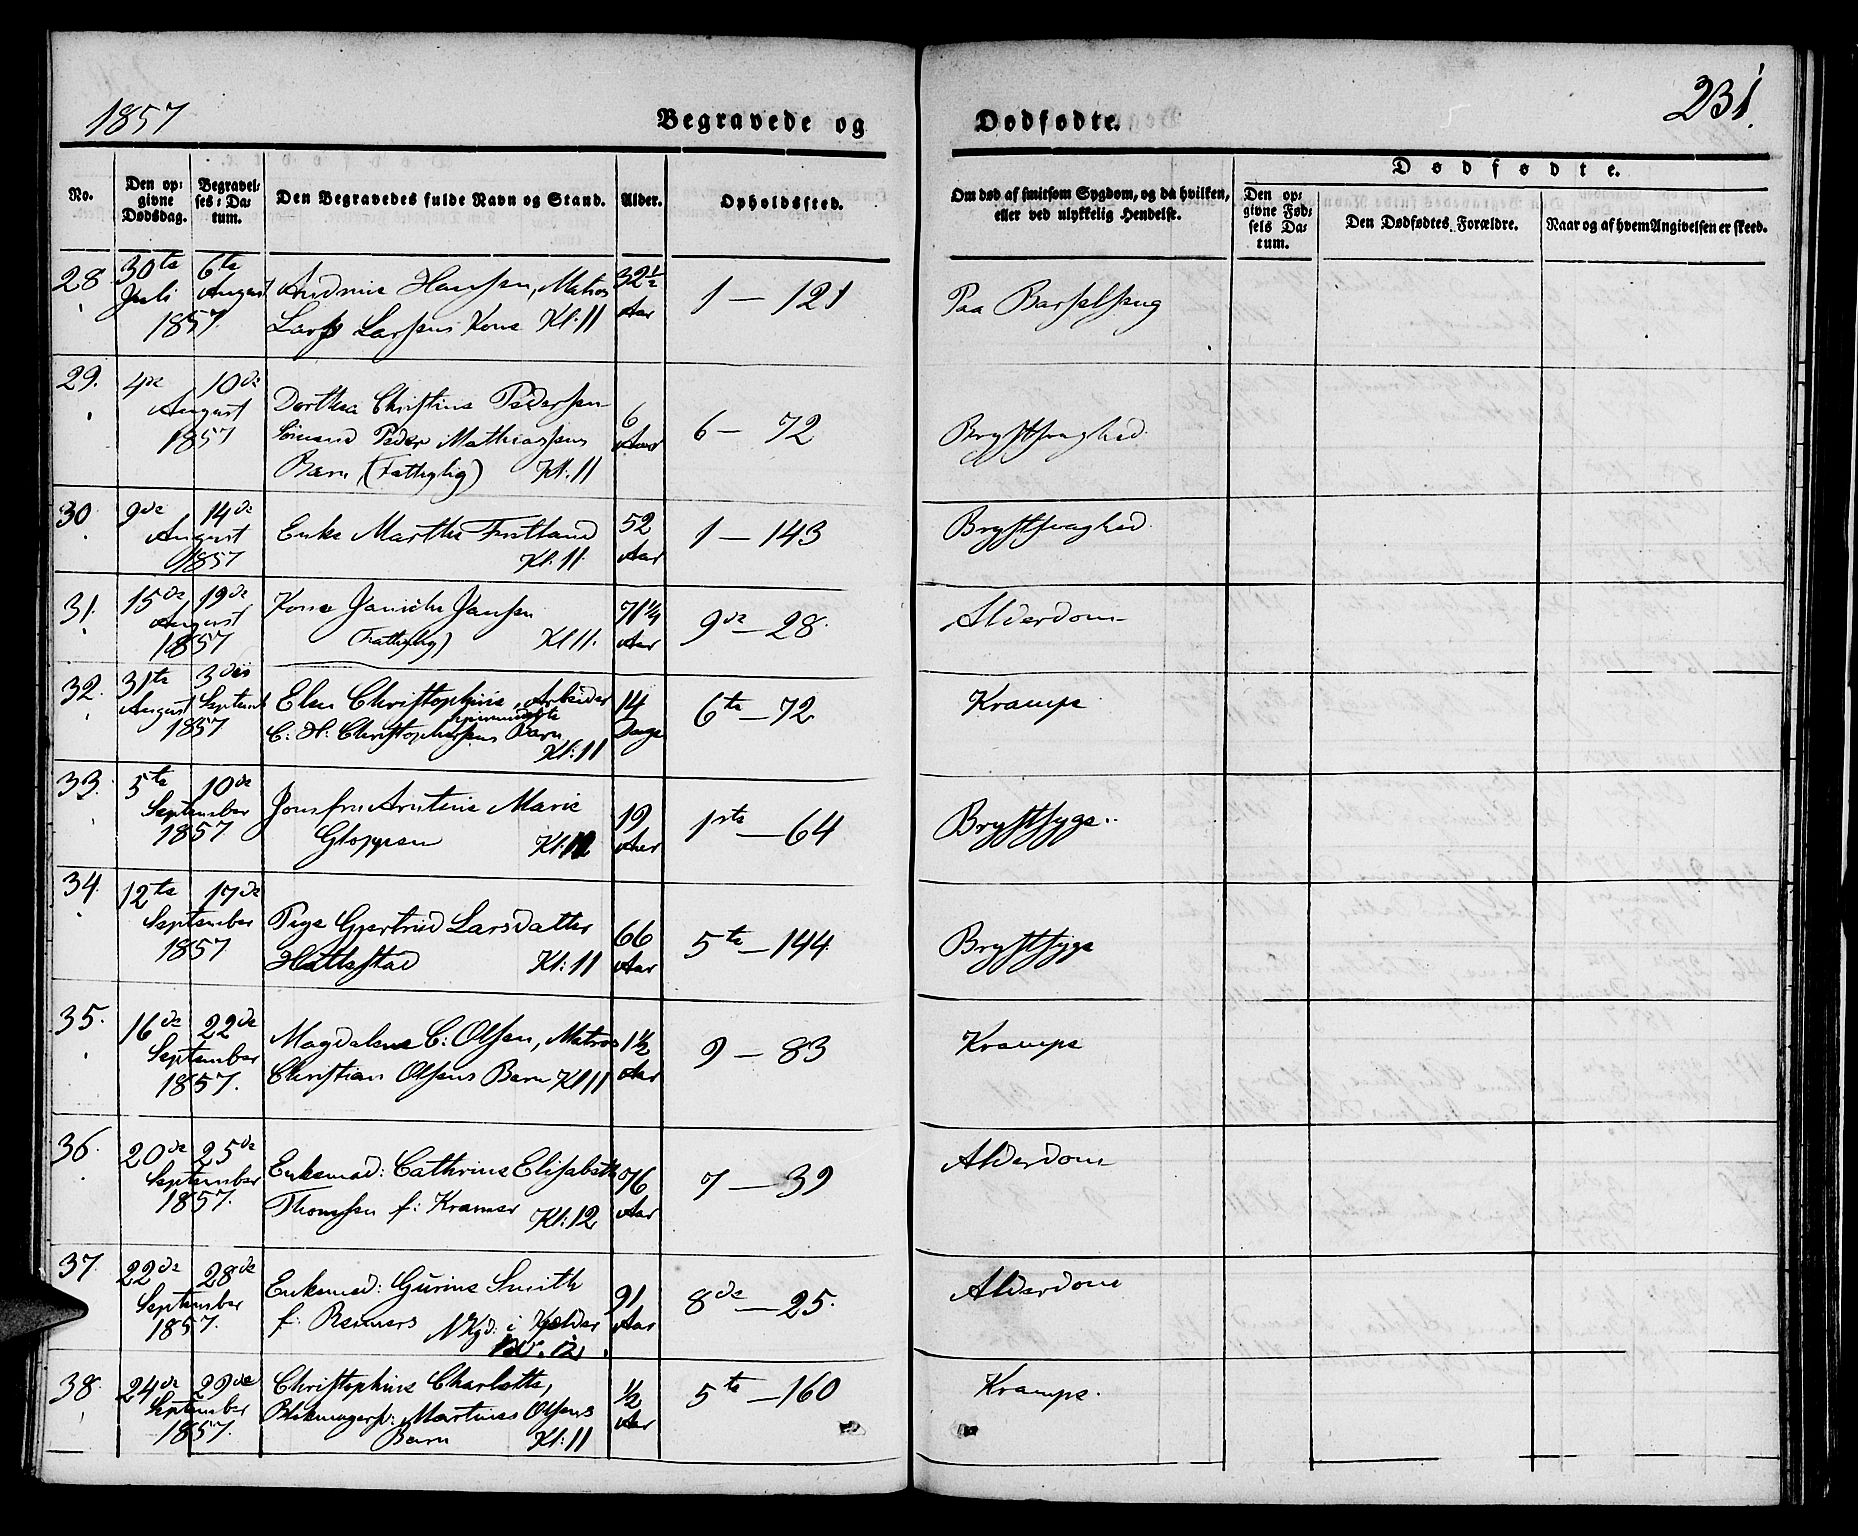 1857
Begravede og
Dødfødte.
231.
No.
Den op:
givne
Dødsdag.
Begravel:
ses: Da:
tum.
Den Begravedes fulde Navn og Stand.
Alder.
Opholdssted.
Om død af smitsom Sygdom, og da hvilken,
eller ved ulykkelig Hendelse.
Dødfødte.
Den op:
givne Fød:
sels Da:
tum.
Den Dødfødtes Forældre.
Naar og af hvem Angivelsen er skeed.
28 30te Juli 6te August 1857.
Hansen, Matros
Lars Larsens Kone Kl: 11
32½ Aar
1 — 121
Paa Barselseng
29. 4de 10de August 1857
Dorthea Christine Pedersen
Sömand Peder Mathiassens
Barn, (Fattiglig) Kl: 11
6 Aar
6 — 72
Brystsvaghed
30 9de 14de August 1857
Enke Marthe
Kl: 11
52 Aar
1 — 143
Brystsvaghed
31. 15de 19de August 1857
Kone Janiche Jansen
(Fattiglig) Kl 11.
71¼ Aar
9de — 28.
Alderdom
32. 31te August 3die Septemb 1857
Elen Christophine, Arbeider
C: H: Christophersens Barn
Kl: 11
14 Dage
6te — 72
Krampe
33. 5te 10de September 1857
Jomfru Marie
Gloppen Kl: 12
19 Aar
1ste — 64
Brystsyge.
34. 12te 17de September 1857
Pige Gjertrud Larsdatter
Hatlestad Kl: 11
66 Aar
5te — 144
Brystsyge
35. 16de 22de September 1857.
Magdalene C: Olsen, Matros
Christian Olsens Barn Kl 11
1½ Aar
9 — 83
Krampe
36. 20de 25de September 1857.
Enkemad: Cathrine Elisabeth
Thomsen f: Kramer Kl: 12
76 Aar
7 — 39
Alderdom
37. 22de 28de September 1857.
Enkemad: Gurine Smith
f: Reimers i Kjelder
No. 12.
91 Aar
8de — 25.
Alderdom
38. 24de 29de September 1857.
Christophine Charlotte,
Blikmagersv: Martinus Olsens
Barn Kl: 11
½ Aar
5te — 160
Krampe.